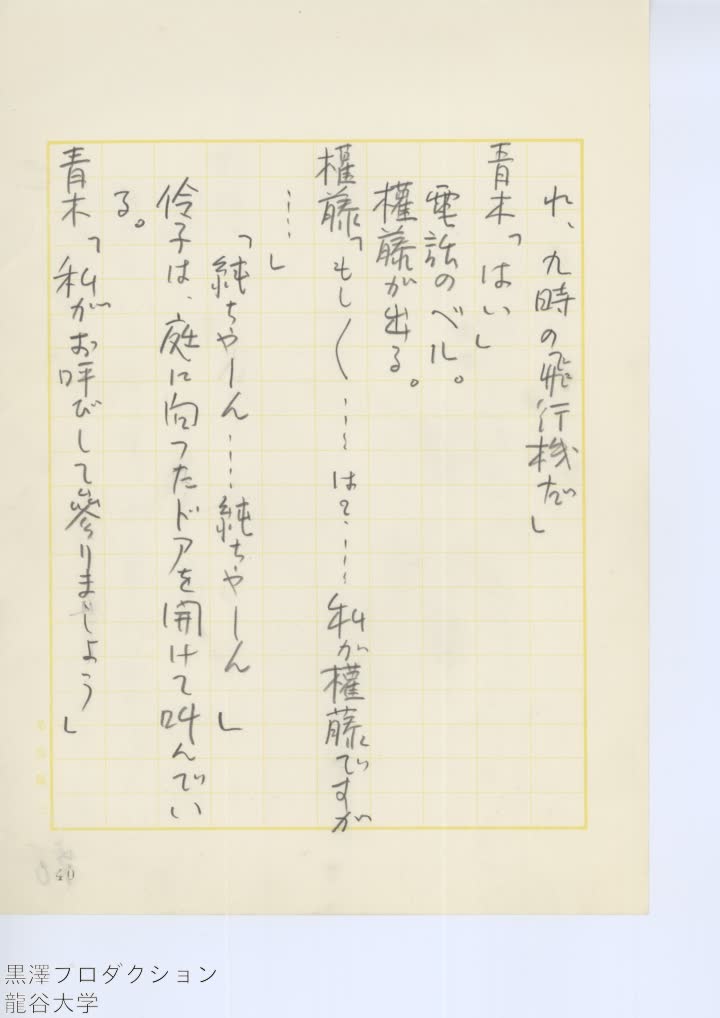 れ、九時の飛行機だ」
青木「はい」
電話のベル。
權藤が出る。
權藤「もし〱……は?……私が權藤ですが
……」
「純ちやーん……純ちやーん」
伶子は、庭に向つたドアを開けて叫んでい
る。
青木「私がお呼びして參りましよう」
40
黒澤プロダクション
龍谷大学